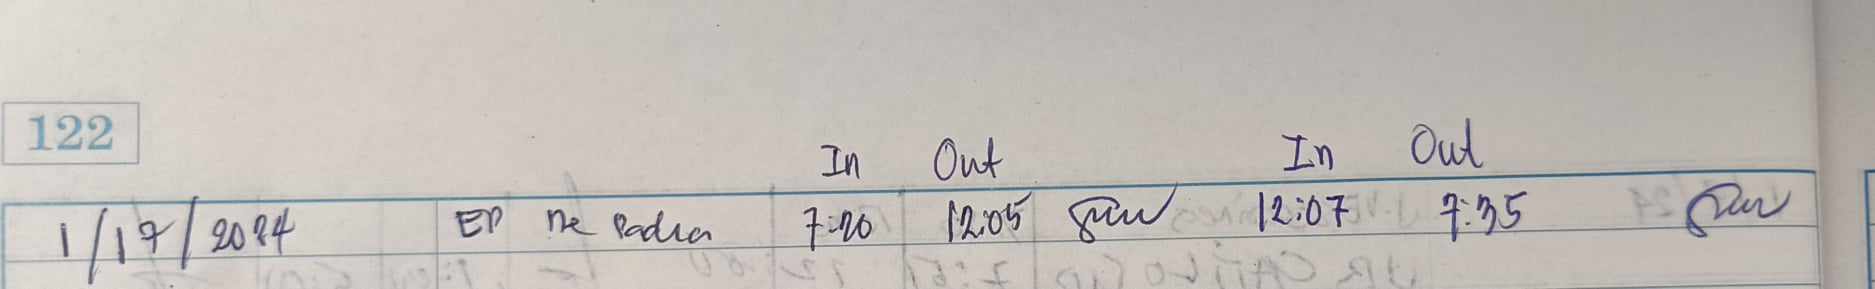 122
In Out In Out
1/17/2024 EP De Padua 7:20 12:05 12:07 7:35